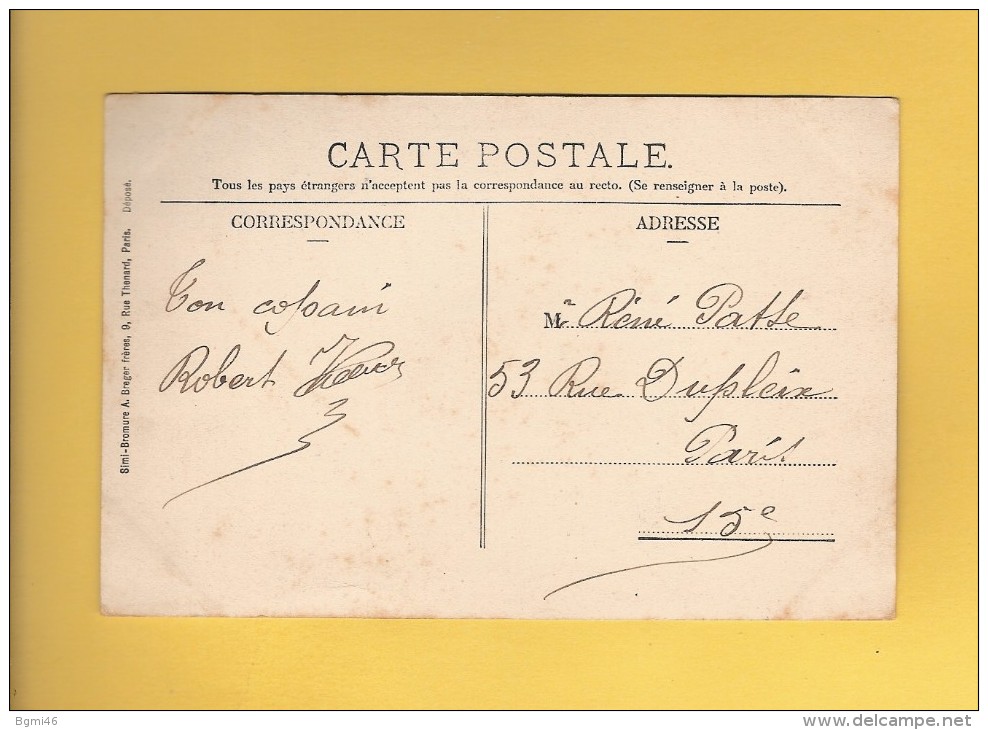 CARTE POSTALE.
Tous les pays étrangers n'acceptent pas la correspondance au recto. (Se renseigner à la poste).
CORRESPONDANCE
Ton copain
Robert
ADRESSE
Mr René Patte
53 Rue Dupleix
Paris
15e
Simi-Bromure A. Breger frères, 9, Rue Thenard, Paris. Déposé.
Bgmi46
www.delcampe.net